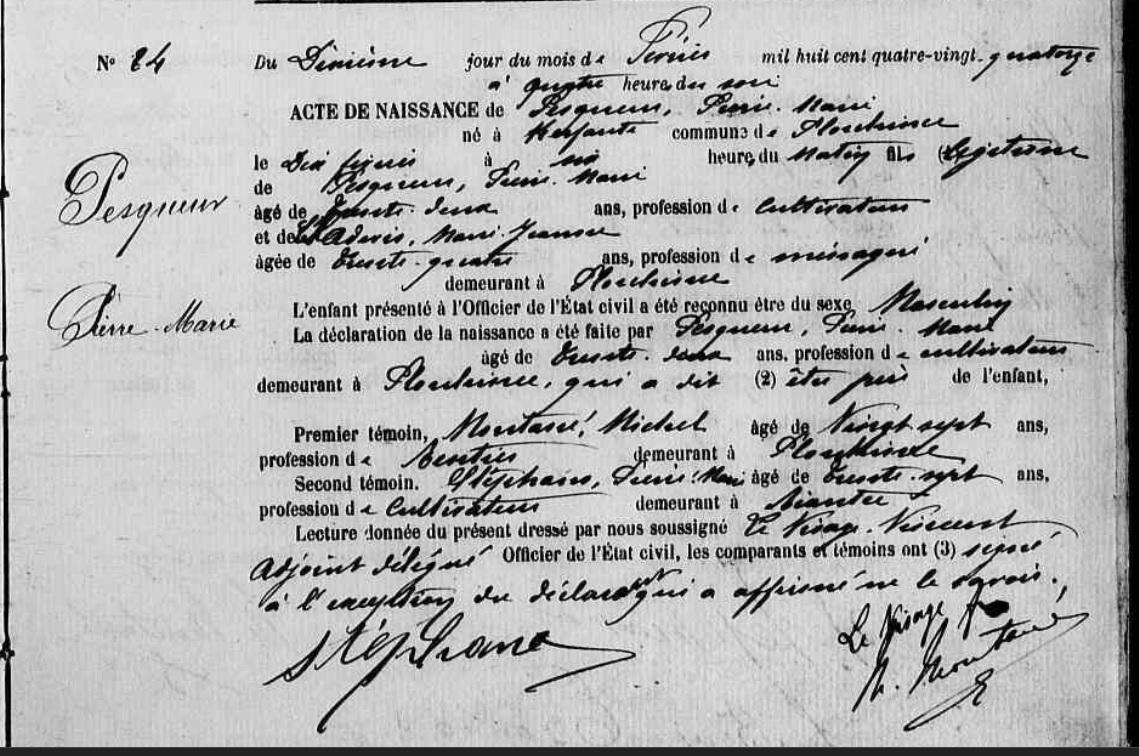 N° 24 Du Dixième jour du mois de Février mil huit cent quatre-vingt-quatorze
à quatre heures du soir
ACTE DE NAISSANCE de Pesqueur, Pierre-Marie,
né à commune de
le Dix février à six heures du Matin fils (Légitime
de Pesqueur, Pierre-Marie
Pesqueur
âgé de trente-deux ans, profession de cultivateur
et de Marie-Jeanne
âgée de trente-quatre ans, profession de ménagère
demeurant à
Pierre-Marie
L'enfant présenté à l'Officier de l'État civil a été reconnu être du sexe Masculin
La déclaration de la naissance a été faite par Pesqueur, Pierre-Marie
âgé de trente-deux ans, profession de cultivateur
demeurant à qui a dit (2) être père de l'enfant,
Premier témoin, Michel âgé de Vingt sept ans,
profession de demeurant à
Second témoin. Stéphano, Pierre-Marie âgé de trente-sept ans,
profession de Cultivateur demeurant à
Lecture donnée du présent dressé par nous soussigné Le Visage Vincent
adjoint délégué Officier de l'État civil, les comparants et témoins ont (3) signé
à l'exception du déclarant qui a affirmé ne le savoir.
Stéphano
Le Visage
M.